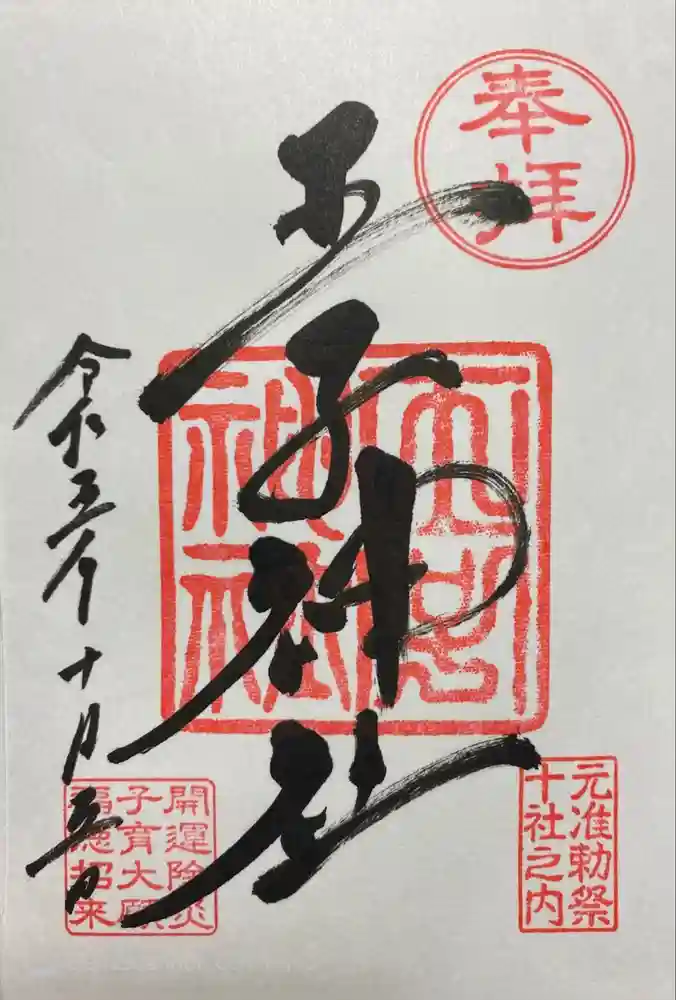 奉拝
王子神社
王子
神社
元准勅祭
十社之内
令和五年十月五日
開運除災
子育大願
福徳招来